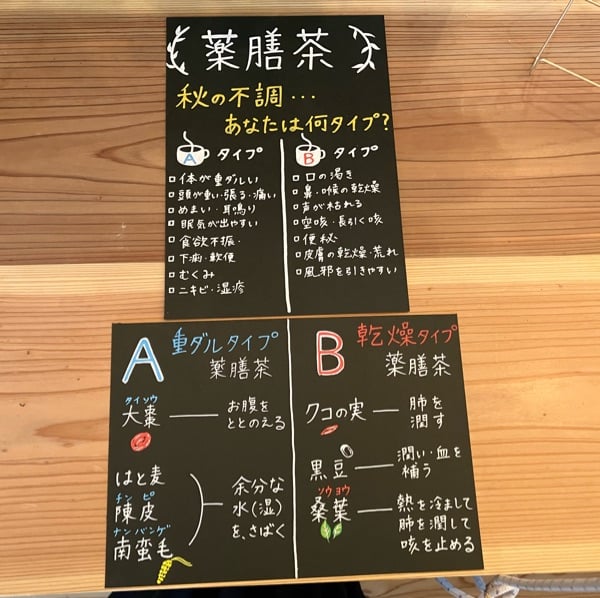 薬膳茶
秋の不調…
あなたは何タイプ?
A タイプ
□体が重ダルい
□頭が重い・張る・痛い
□めまい・耳鳴り
□眠気が出やすい
□食欲不振・
□下痢・軟便
□むくみ
□ニキビ・湿疹
B タイプ
□口の渇き
□鼻・喉の乾燥
□声が枯れる
□空咳・長引く咳
□便秘
□皮膚の乾燥・荒れ
□風邪を引きやすい
A 重ダルタイプ
薬膳茶
タイソウ
大棗 ― お腹を
ととのえる
はと麦
チンピ
陳皮
ナンバンゲ
南蛮毛
余分な
水(湿)
を、さばく
B 乾燥タイプ
薬膳茶
クコの実 ― 肺を
潤す
黒豆 ― 潤い・血を
補う
ソウヨウ
桑葉 ― 熱を冷まして
肺を潤して
咳を止める